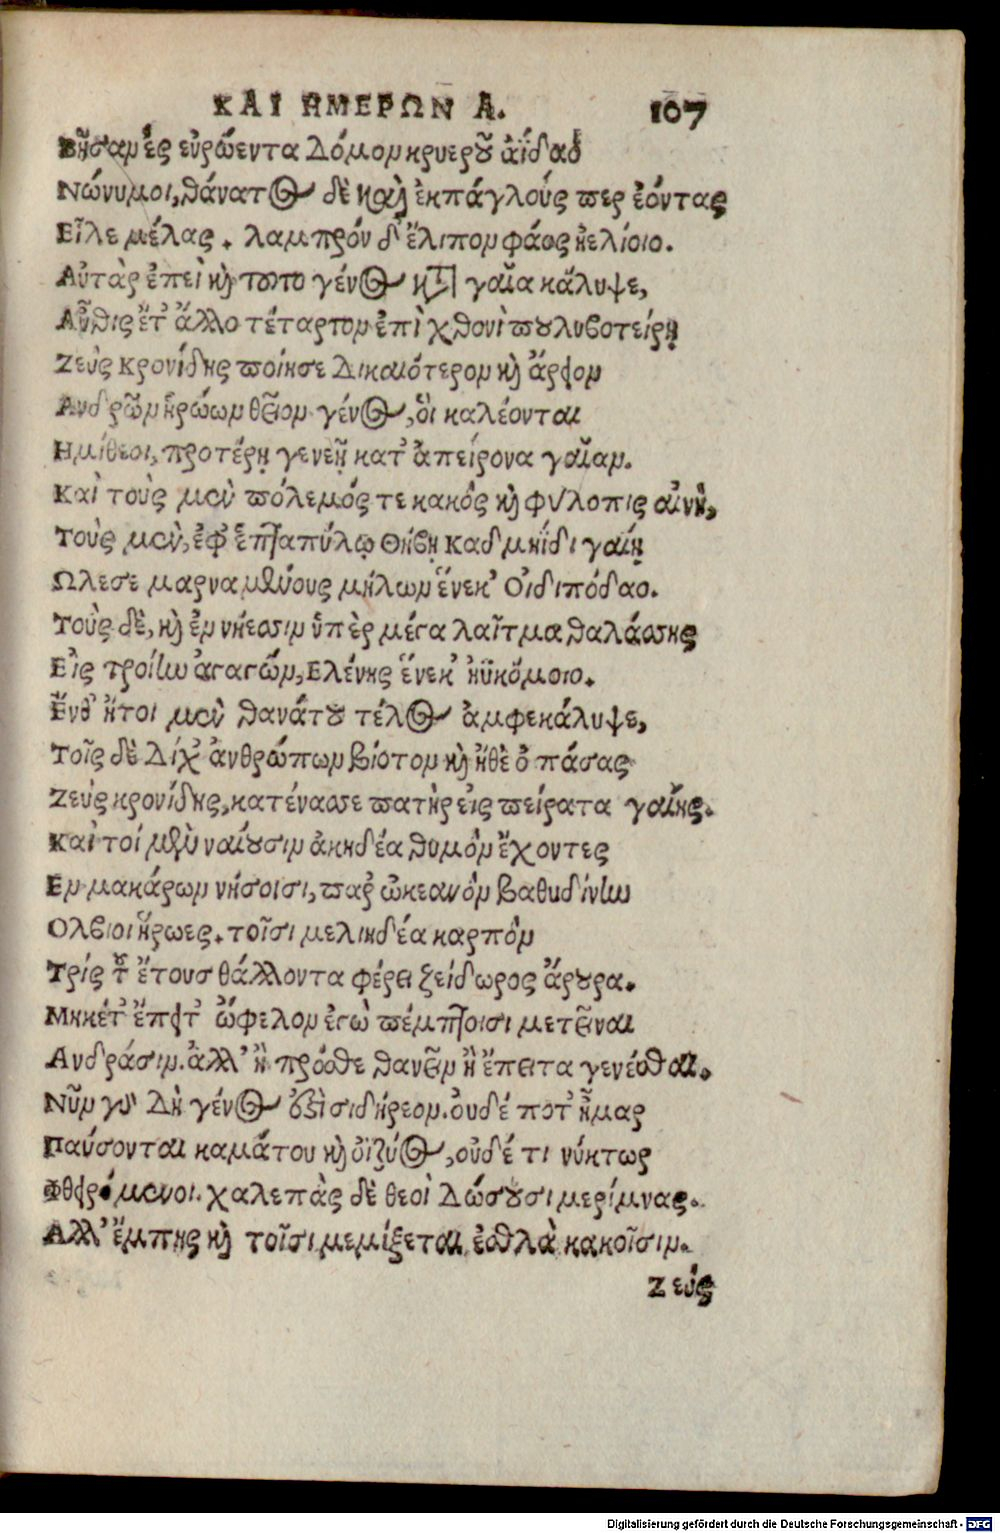 ΚΑΙ ΗΜΕΡΩΝ Α. 107
Βῆσαν ἐς εὐρώεντα δόμον κρυεροῦ ἀΐδαο
Νώνυμοι, θάνατος δὲ καὶ ἐκπάγλούς περ ἐόντας
Εἷλε μέλας. λαμπρόν δ' ἔλιπον φάος ἠελίοιο.
Αὐτὰρ ἐπεὶ καὶ τοῦτο γένος κατὰ γαῖα κάλυψε,
Αὖθις ἔτ' ἄλλο τέταρτον ἐπὶ χθονὶ πουλυβοτείρῃ
Ζεὺς Κρονίδης ποίησε δικαιότερον καὶ ἄρειον
Ανδρῶν ἡρώων θεῖον γένος, ὃι καλέονται
Ημίθεοι, προτέρῃ γενεῇ κατ' ἀπείρονα γαῖαν.
Καὶ τοὺς μὲν πόλεμός τε κακὸς καὶ φύλοπις αἰνὴ,
Τοὺς μὲν, ἐφ' ἑπταπύλῳ Θήβῃ Καδμηΐδι γαίῃ
Ωλεσε μαρναμένους μήλων ἕνεκ' Οἰδιπόδαο.
Τοὺς δὲ, καὶ ἐν νήεσσιν ὑπὲρ μέγα λαῖτμα θαλάσσης
Εἰς τροίην ἀγαγών, Ελένης ἕνεκ' ἠϋκόμοιο.
Ἔνθ' ἤτοι μὲν θανάτου τέλος ἀμφεκάλυψε,
Τοῖς δὲ δίχ' ἀνθρώπων βίοτον καὶ ἤθε' ὀπάσας
Ζεὺς κρονίδης, κατένασσε πατὴρ εἰς πείρατα γαίης.
Καὶ τοί μὲν ναίουσιν ἀκηδέα θυμὸν ἔχοντες
Εν μακάρων νήσοισι, παρ' ὠκεανὸν βαθυδίνην
Ολβιοι ἥρωες. τοῖσι μελιηδέα καρπὸν
Τρίς τ' ἔτους θάλλοντα φέρει ζείδωρος ἄρουρα.
Μηκέτ' ἔπειτ' ὤφελον ἐγὼ πέμπτοισι μετεῖναι
Ανδράσιν. ἀλλ' ἢ πρόσθε θανεῖν ἢ ἔπειτα γενέσθαι.
Νῦν γὰρ δὴ γένος ἐστὶ σιδήρεον. ὀυδέ ποτ' ἦμαρ
Παύσονται καμάτου καὶ ὀϊζύος, οὐδέ τι νύκτωρ
Φθειρόμενοι. χαλεπὰς δὲ θεοὶ δώσουσι μερίμνας.
Αλλ' ἔμπης καὶ τοῖσι μεμίξεται ἐσθλὰ κακοῖσιν.
Ζεύς
Digitalisierung gefördert durch die Deutsche Forschungsgemeinschaft - DFG